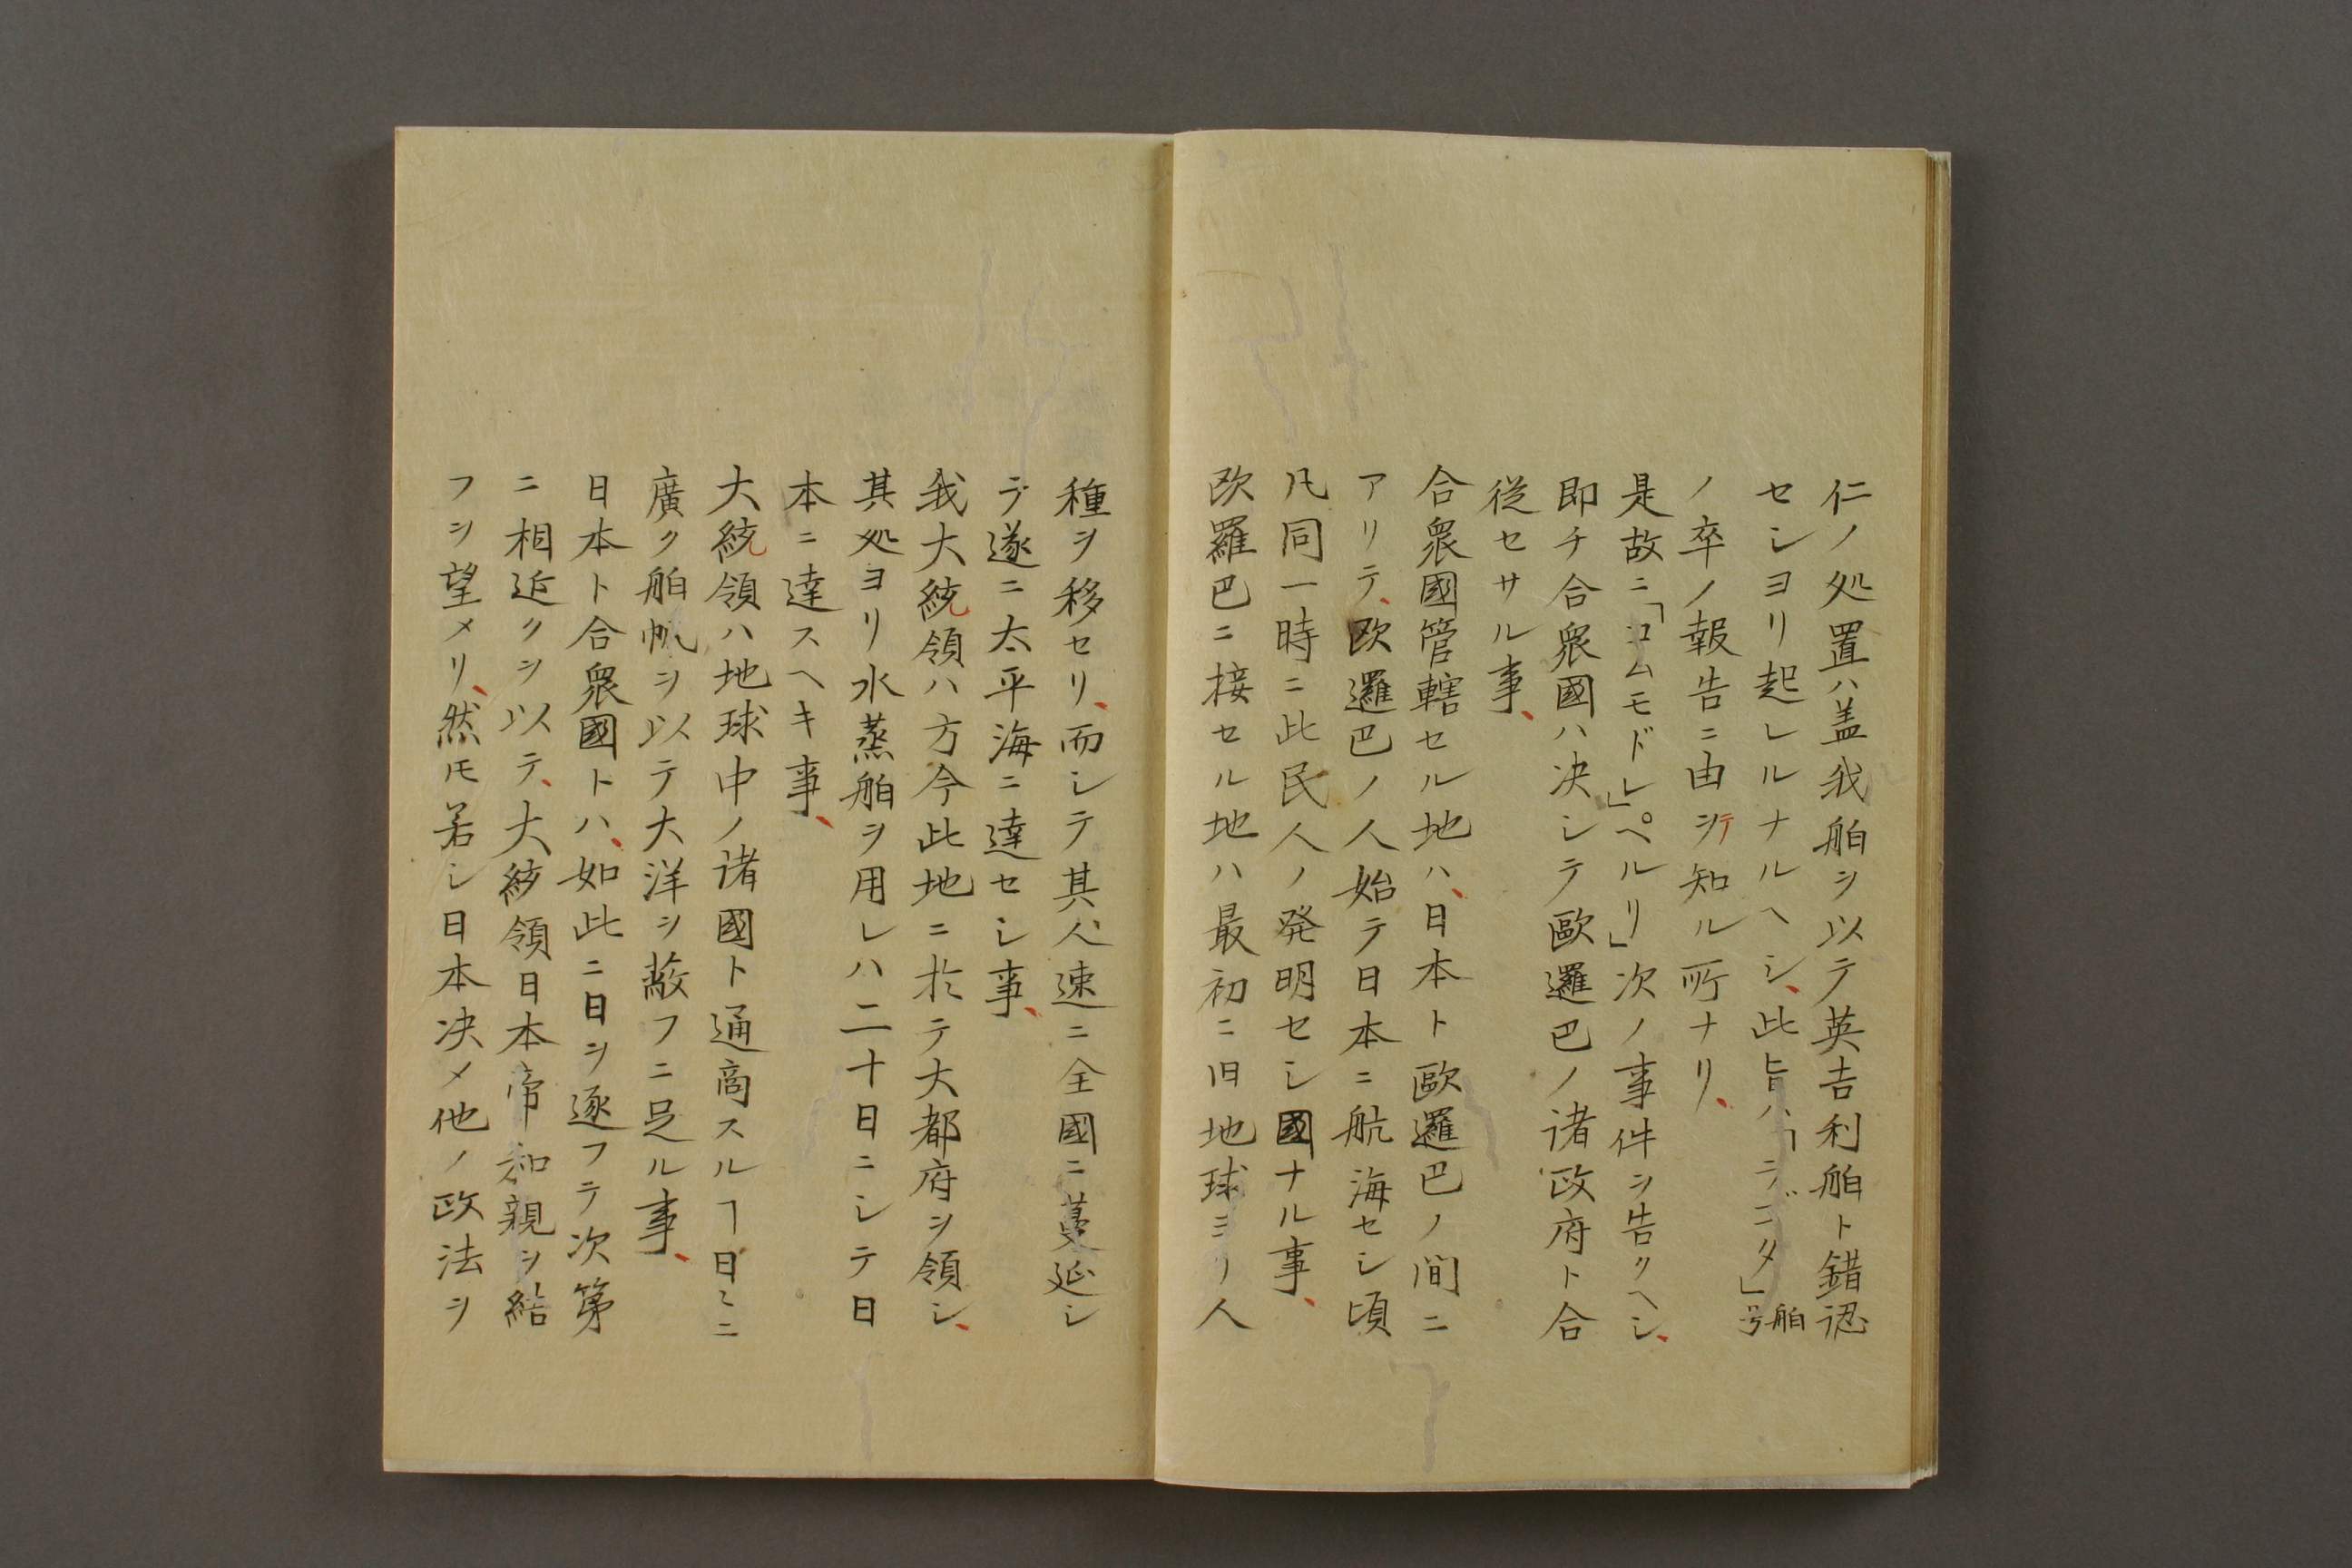 仁ノ処置ハ盖我舶ヲ以テ英吉利舶ト錯認
セシヨリ起レルナルヘシ、此旨ハ「ニブニタ」舶号
ノ卒ノ報告ニ由ヲテ知ル所ナリ、
是故ニ「コムモドレ」「ペルリ」次ノ事件ヲ告クヘシ、
即チ合衆國ハ决シテ歐邏巴ノ诸政府ト合
従セサル事、
合衆國管轄セル地ハ、日本ト歐邏巴ノ间ニ
アリテ、欧邏巴ノ人始テ日本ニ航海セシ頃
凡同一時ニ此民人ノ発明セシ國ナル事、
欧羅巴ニ接セル地ハ最初ニ旧地球ヨリ人
種ヲ移セリ、而シテ其人速ニ全國ニ蔓延シ
テ遂ニ太平海ニ達セシ事、
我大統領ハ方今此地ニ於テ大都府ヲ領シ、
其処ヨリ水蒸舶ヲ用レハ二十日ニシテ日
本ニ達スヘキ事、
大統領ハ地球中ノ诸國ト通商スルヿ日〻ニ
廣ク舶帆ヲ以テ大洋ヲ蔽フニ足ル事、
日本ト合衆國トハ、如此ニ日ヲ逐フテ次第
ニ相近クヲ以テ、大統領日本帝和親ヲ結
フヲ望メリ、然𪜈若シ日本决メ他ノ政法ヲ